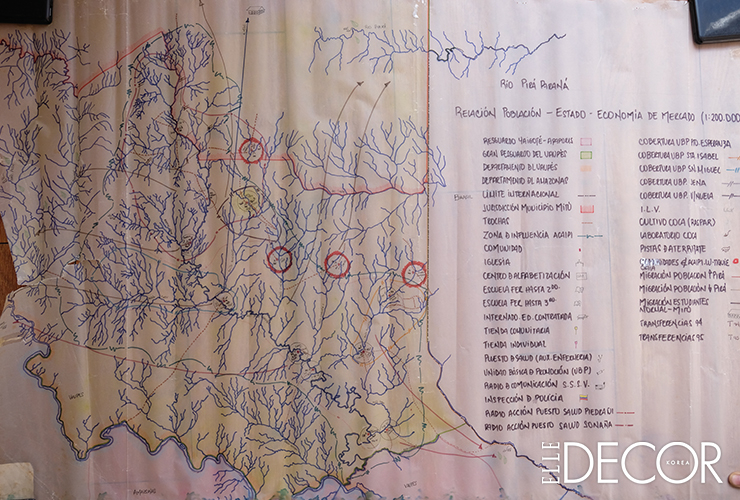 RÍO PIRÁ PARANÁ
RELACIÓN POBLACIÓN - ESTADO - ECONOMÍA DE MERCADO (1:200.000
RESGUARDO YAIGOJÉ-APAPORIS
GRAN RESGUARDO DEL VAUPÉS
DEPARTAMENTO D VAUPÉS
DEPARTAMENTO DE AMAZONAS
LÍMITE INTERNACIONAL
JURISDICCIÓN MUNICIPIO MITÚ
TROCHAS
ZONA D INFLUENCIA ACAIPI
COMUNIDAD
IGLESIA
CENTRO D ALFABETIZACIÓN
ESCUELA FEC HASTA 2DO.
ESCUELA FEC HASTA 5TO.
INTERNADO ED. CONTRATADA
TIENDA COMUNITARIA
TIENDA INDIVIDUAL
PUESTO D SALUD (AUX. ENFERMERÍA)
UNIDAD BÁSICA D PROMOCIÓN (UBP)
RADIO D COMUNICACIÓN S.S.E.V.
INSPECCIÓN D POLICÍA
RADIO ACCIÓN PUESTO SALUD PIEDRA ÑI
RADIO ACCIÓN PUESTO SALUD SONAÑA
COBERTURA UBP PTO. ESPERANZA
COBERTURA UBP STA ISABEL
COBERTURA UBP SN. MIGUEL
COBERTURA UBP JENA
COBERTURA UBP
I.L.V.
CULTIVO COCA (RASPAR)
LABORATORIO COCA
PISTAS D ATERRIZAJE
MIGRACIÓN POBLACIÓN ↑ PIRÁ
MIGRACIÓN POBLACIÓN ↓ PIRÁ
MIGRACIÓN ESTUDIANTES
NORMAL-MITÚ
TRANSFERENCIAS 94
TRANSFERENCIAS 95
BRASIL
VAUPÉS
AMAZONAS
ELLE DECOR KOREA